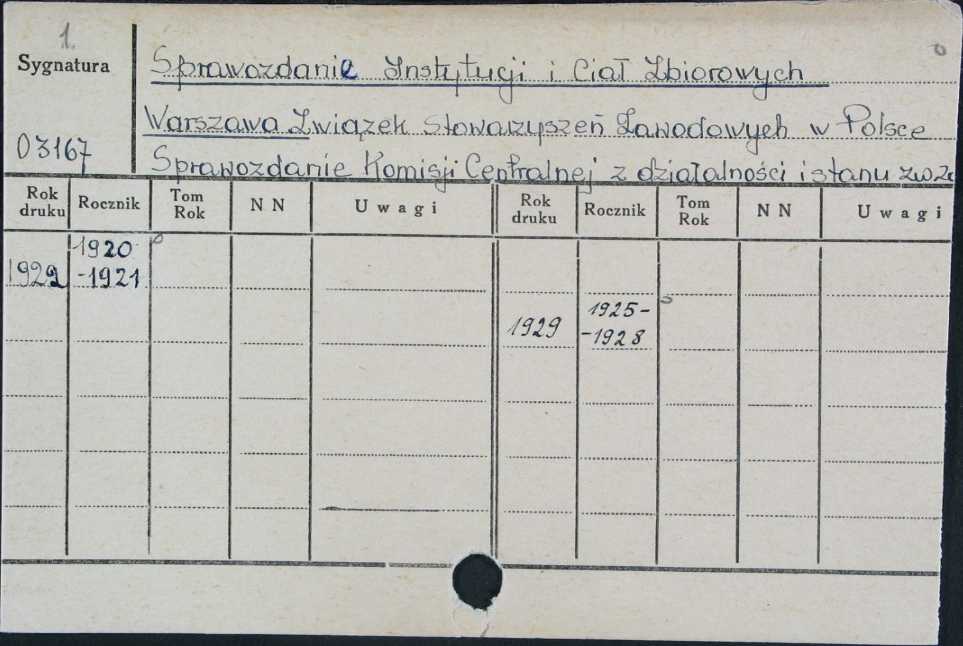 1.
Sygnatura
Sprawozdanie Instytucji i Ciał Zbiorowych
Warszawa Związek Stowarzyszeń Zawodowych w Polsce
03167
Sprawozdanie Komisji Centralnej z działalności i stanu zw.
Rok druku Rocznik Tom Rok N N Uwagi Rok druku Rocznik Tom Rok N N Uwagi
1920
1922 -1921
1925-
1929 -1928